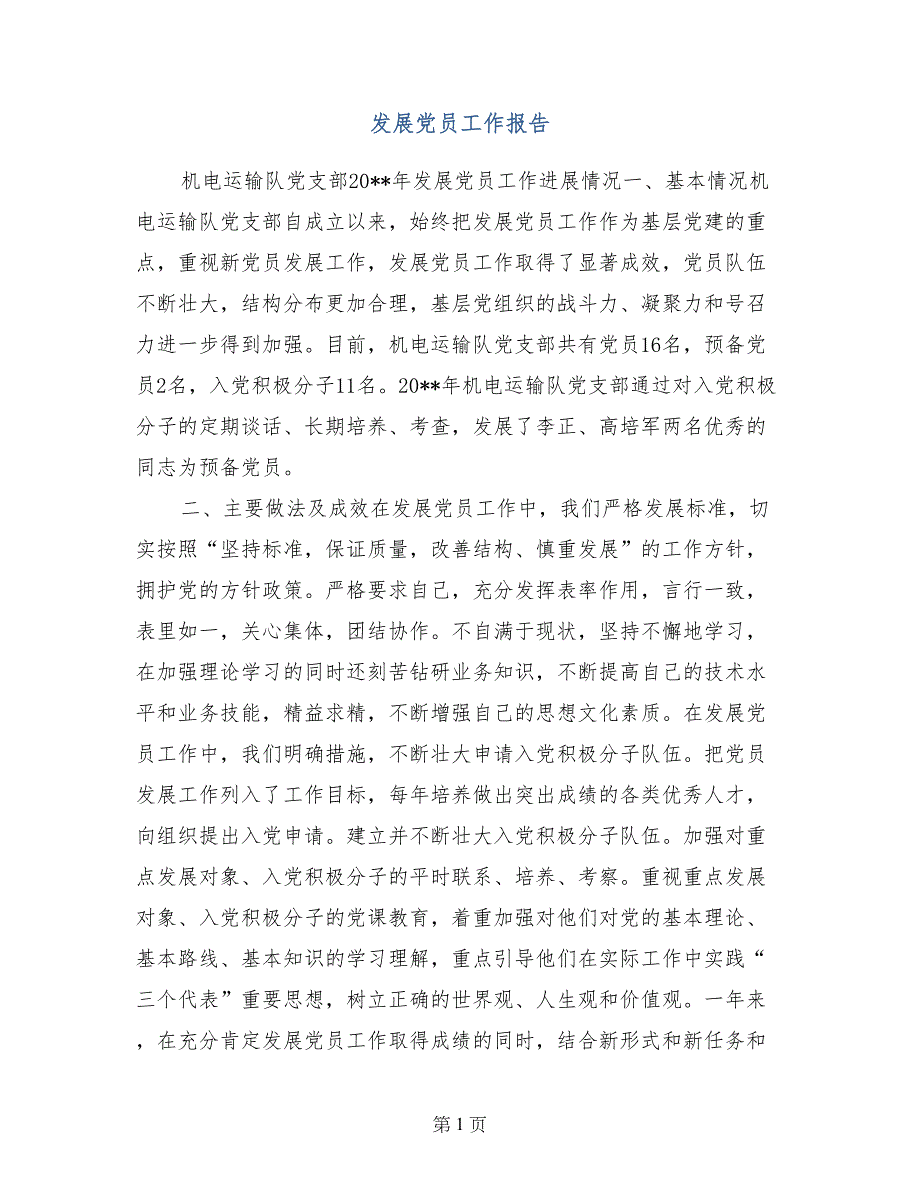 发展党员工作报告
机电运输队党支部20**年发展党员工作进展情况一、基本情况机
电运输队党支部自成立以来，始终把发展党员工作作为基层党建的重
点，重视新党员发展工作，发展党员工作取得了显著成效，党员队伍
不断壮大，结构分布更加合理，基层党组织的战斗力、凝聚力和号召
力进一步得到加强。目前，机电运输队党支部共有党员16名，预备党
员2名，入党积极分子11名。20**年机电运输队党支部通过对入党积极
分子的定期谈话、长期培养、考查，发展了李正、高培军两名优秀的
同志为预备党员。
二、主要做法及成效在发展党员工作中，我们严格发展标准，切
实按照“坚持标准，保证质量，改善结构、慎重发展”的工作方针，
拥护党的方针政策。严格要求自己，充分发挥表率作用，言行一致，
表里如一，关心集体，团结协作。不自满于现状，坚持不懈地学习，
在加强理论学习的同时还刻苦钻研业务知识，不断提高自己的技术水
平和业务技能，精益求精，不断增强自己的思想文化素质。在发展党
员工作中，我们明确措施，不断壮大申请入党积极分子队伍。把党员
发展工作列入了工作目标，每年培养做出突出成绩的各类优秀人才，
向组织提出入党申请。建立并不断壮大入党积极分子队伍。加强对重
点发展对象、入党积极分子的平时联系、培养、考察。重视重点发展
对象、入党积极分子的党课教育，着重加强对他们对党的基本理论、
基本路线、基本知识的学习理解，重点引导他们在实际工作中实践“
三个代表”重要思想，树立正确的世界观、人生观和价值观。一年来
，在充分肯定发展党员工作取得成绩的同时，结合新形式和新任务和
第 1 页